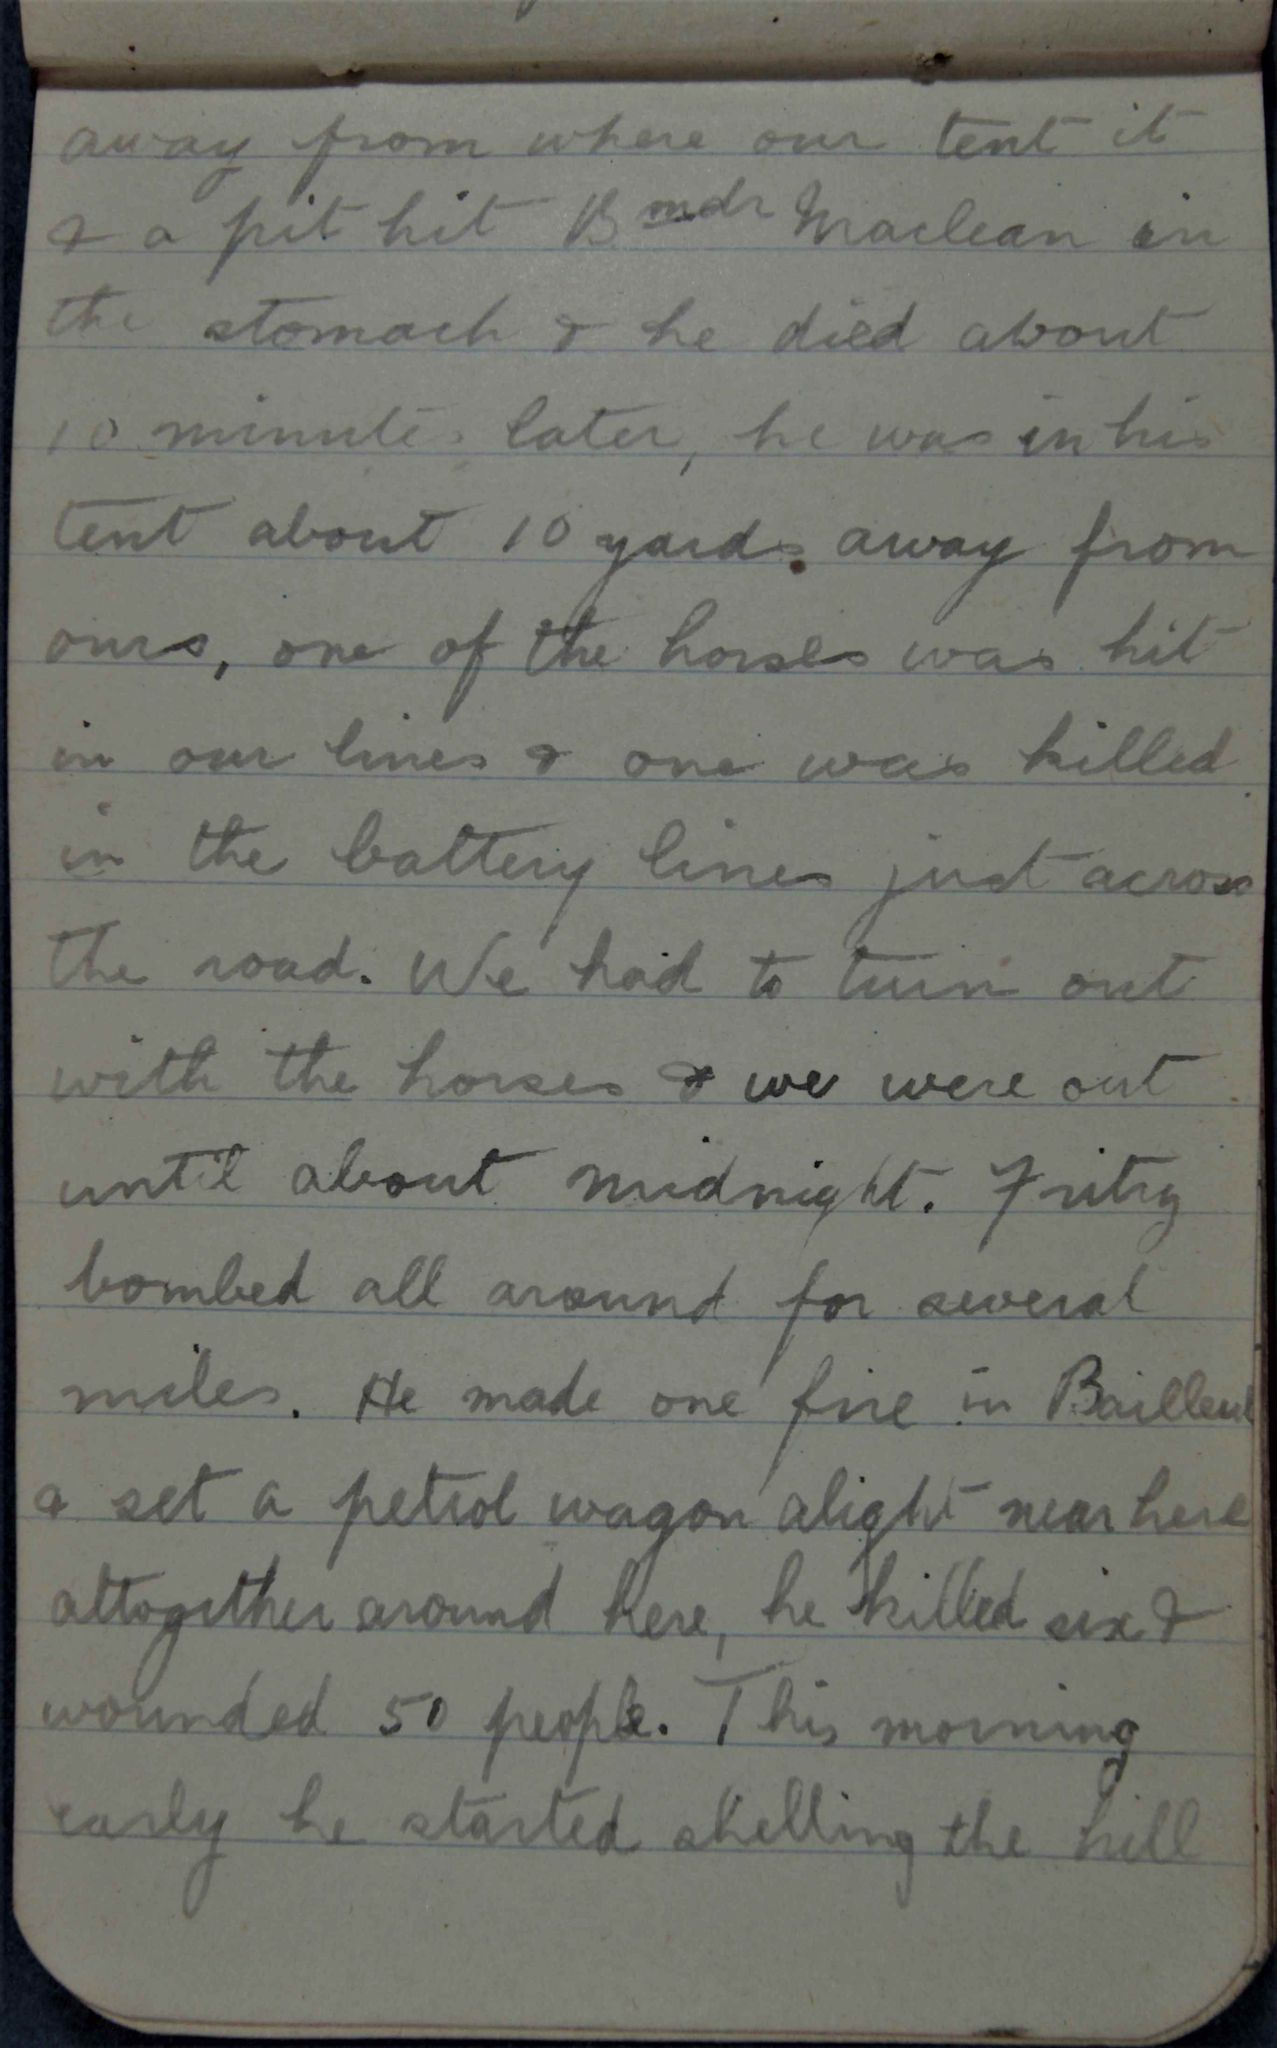 away from where our tent it
& a pit hit Bmdr Maclean in
the stomach & he died about
10 minutes later, he was in his
tent about 10 yards away from
ours, one of the horses was hit
in our lines & one was killed
in the battery lines just across
the road. We had to turn out
with the horses & we were out
until about midnight. Fritz
bombed all around for several
miles. He made one fire in Bailleul
& set a petrol wagon alight near here
altogether around here, he killed six &
wounded 50 people. This morning
early he started shelling the hill